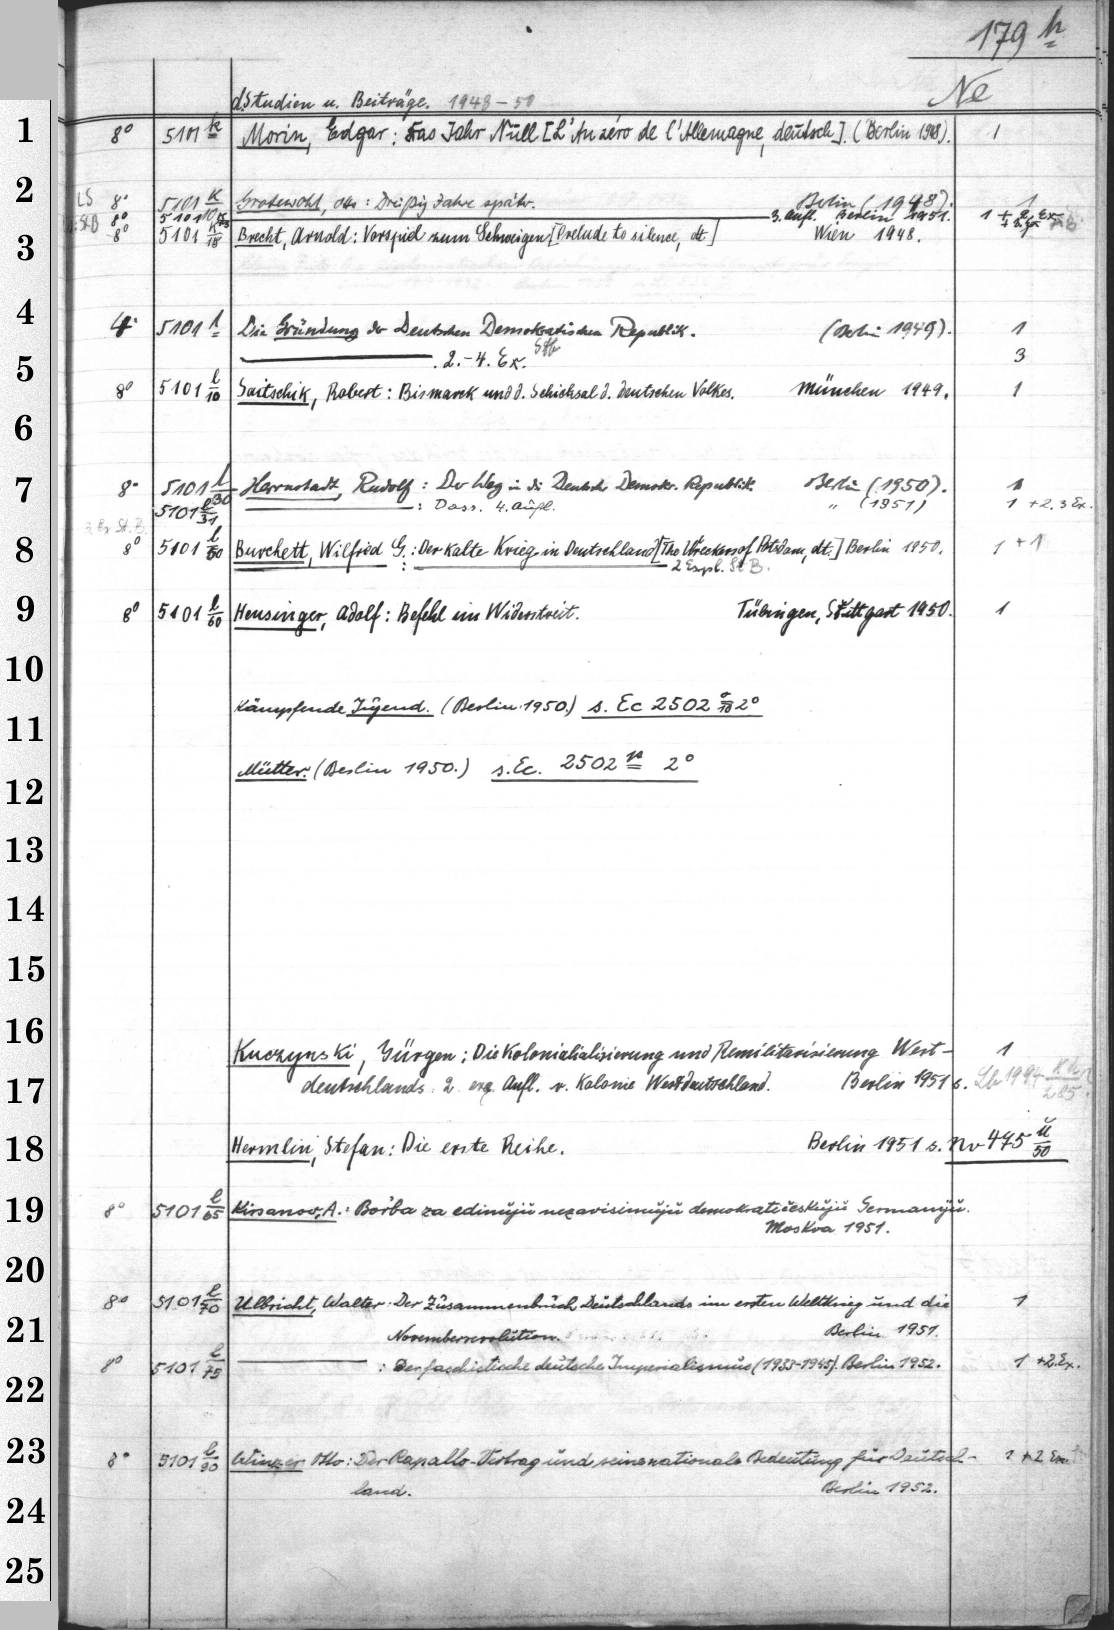 179 h
Ne
d. Studien u. Beiträge. 1948-50
1 8° 5101 k Morin, Edgar: Das Jahr Null [L'An zéro de l'Allemagne, deutsch]. (Berlin 1948). 1
2 LS 8° 5101 k/10 Grotewohl, Otto: Dreißig Jahre später. Berlin (1948). 1
8° 5101 3. Aufl. Berlin 1951. 1 + 2. Ex.
3 8° 5101 k/18 Brecht, Arnold: Vorspiel zum Schweigen [Prelude to silence, dt.] Wien 1948.
4 4° 5101 l Die Gründung der Deutschen Demokratischen Republik. (Berlin 1949). 1
5 2.-4. Ex. 3
8° 5101 l/10 Saitschik, Robert: Bismarck und d. Schicksal d. deutschen Volkes. München 1949. 1
6
7 8° 5101 l/30 Herrnstadt, Rudolf: Der Weg in die Deutsche Demokr. Republik. Berlin (1950). 1
5101 l/31 : Dass. 4. Aufl. " (1951) 1 + 2. 3 Ex.
8 8° 5101 l/50 Burchett, Wilfred G.: Der kalte Krieg in Deutschland [The Wreckers of Potsdam, dt.] Berlin 1950. 1 + 1
2 Expl. St B.
9 8° 5101 l/60 Heusinger, Adolf: Befehl im Widerstreit. Tübingen, Stuttgart 1950. 1
10
Kämpfende Jugend. (Berlin 1950.) s. Ec 2502 o/10 2°
11
Mütter. (Berlin 1950.) s. Ec. 2502 p 2°
12
13
14
15
16
Kuczynski, Jürgen: Die Kolonialisierung und Remilitarisierung West- 1
17 deutschlands. 2. erg. Aufl. v. Kolonie Westdeutschland. Berlin 1951 s.
18 Hermlin, Stefan: Die erste Reihe. Berlin 1951 s. Nv 475 u/50
19 8° 5101 l/65 Kirsanov, A.: Bor'ba za edinuju nezavisimuju demokratičeskuju Germaniju.
Moskva 1951.
20
8° 5101 l/70 Ulbricht, Walter: Der Zusammenbruch Deutschlands im ersten Weltkrieg und die 1
21 Novemberrevolution. Berlin 1951.
8° 5101 l/75 : Der faschistische deutsche Imperialismus (1933-1945). Berlin 1952. 1 + 2. Ex.
22
23 8° 5101 l/90 Winzer, Otto: Der Rapallo-Vertrag und seine nationale Bedeutung für Deutsch- 1 + 2 Ex.
land. Berlin 1952.
24
25